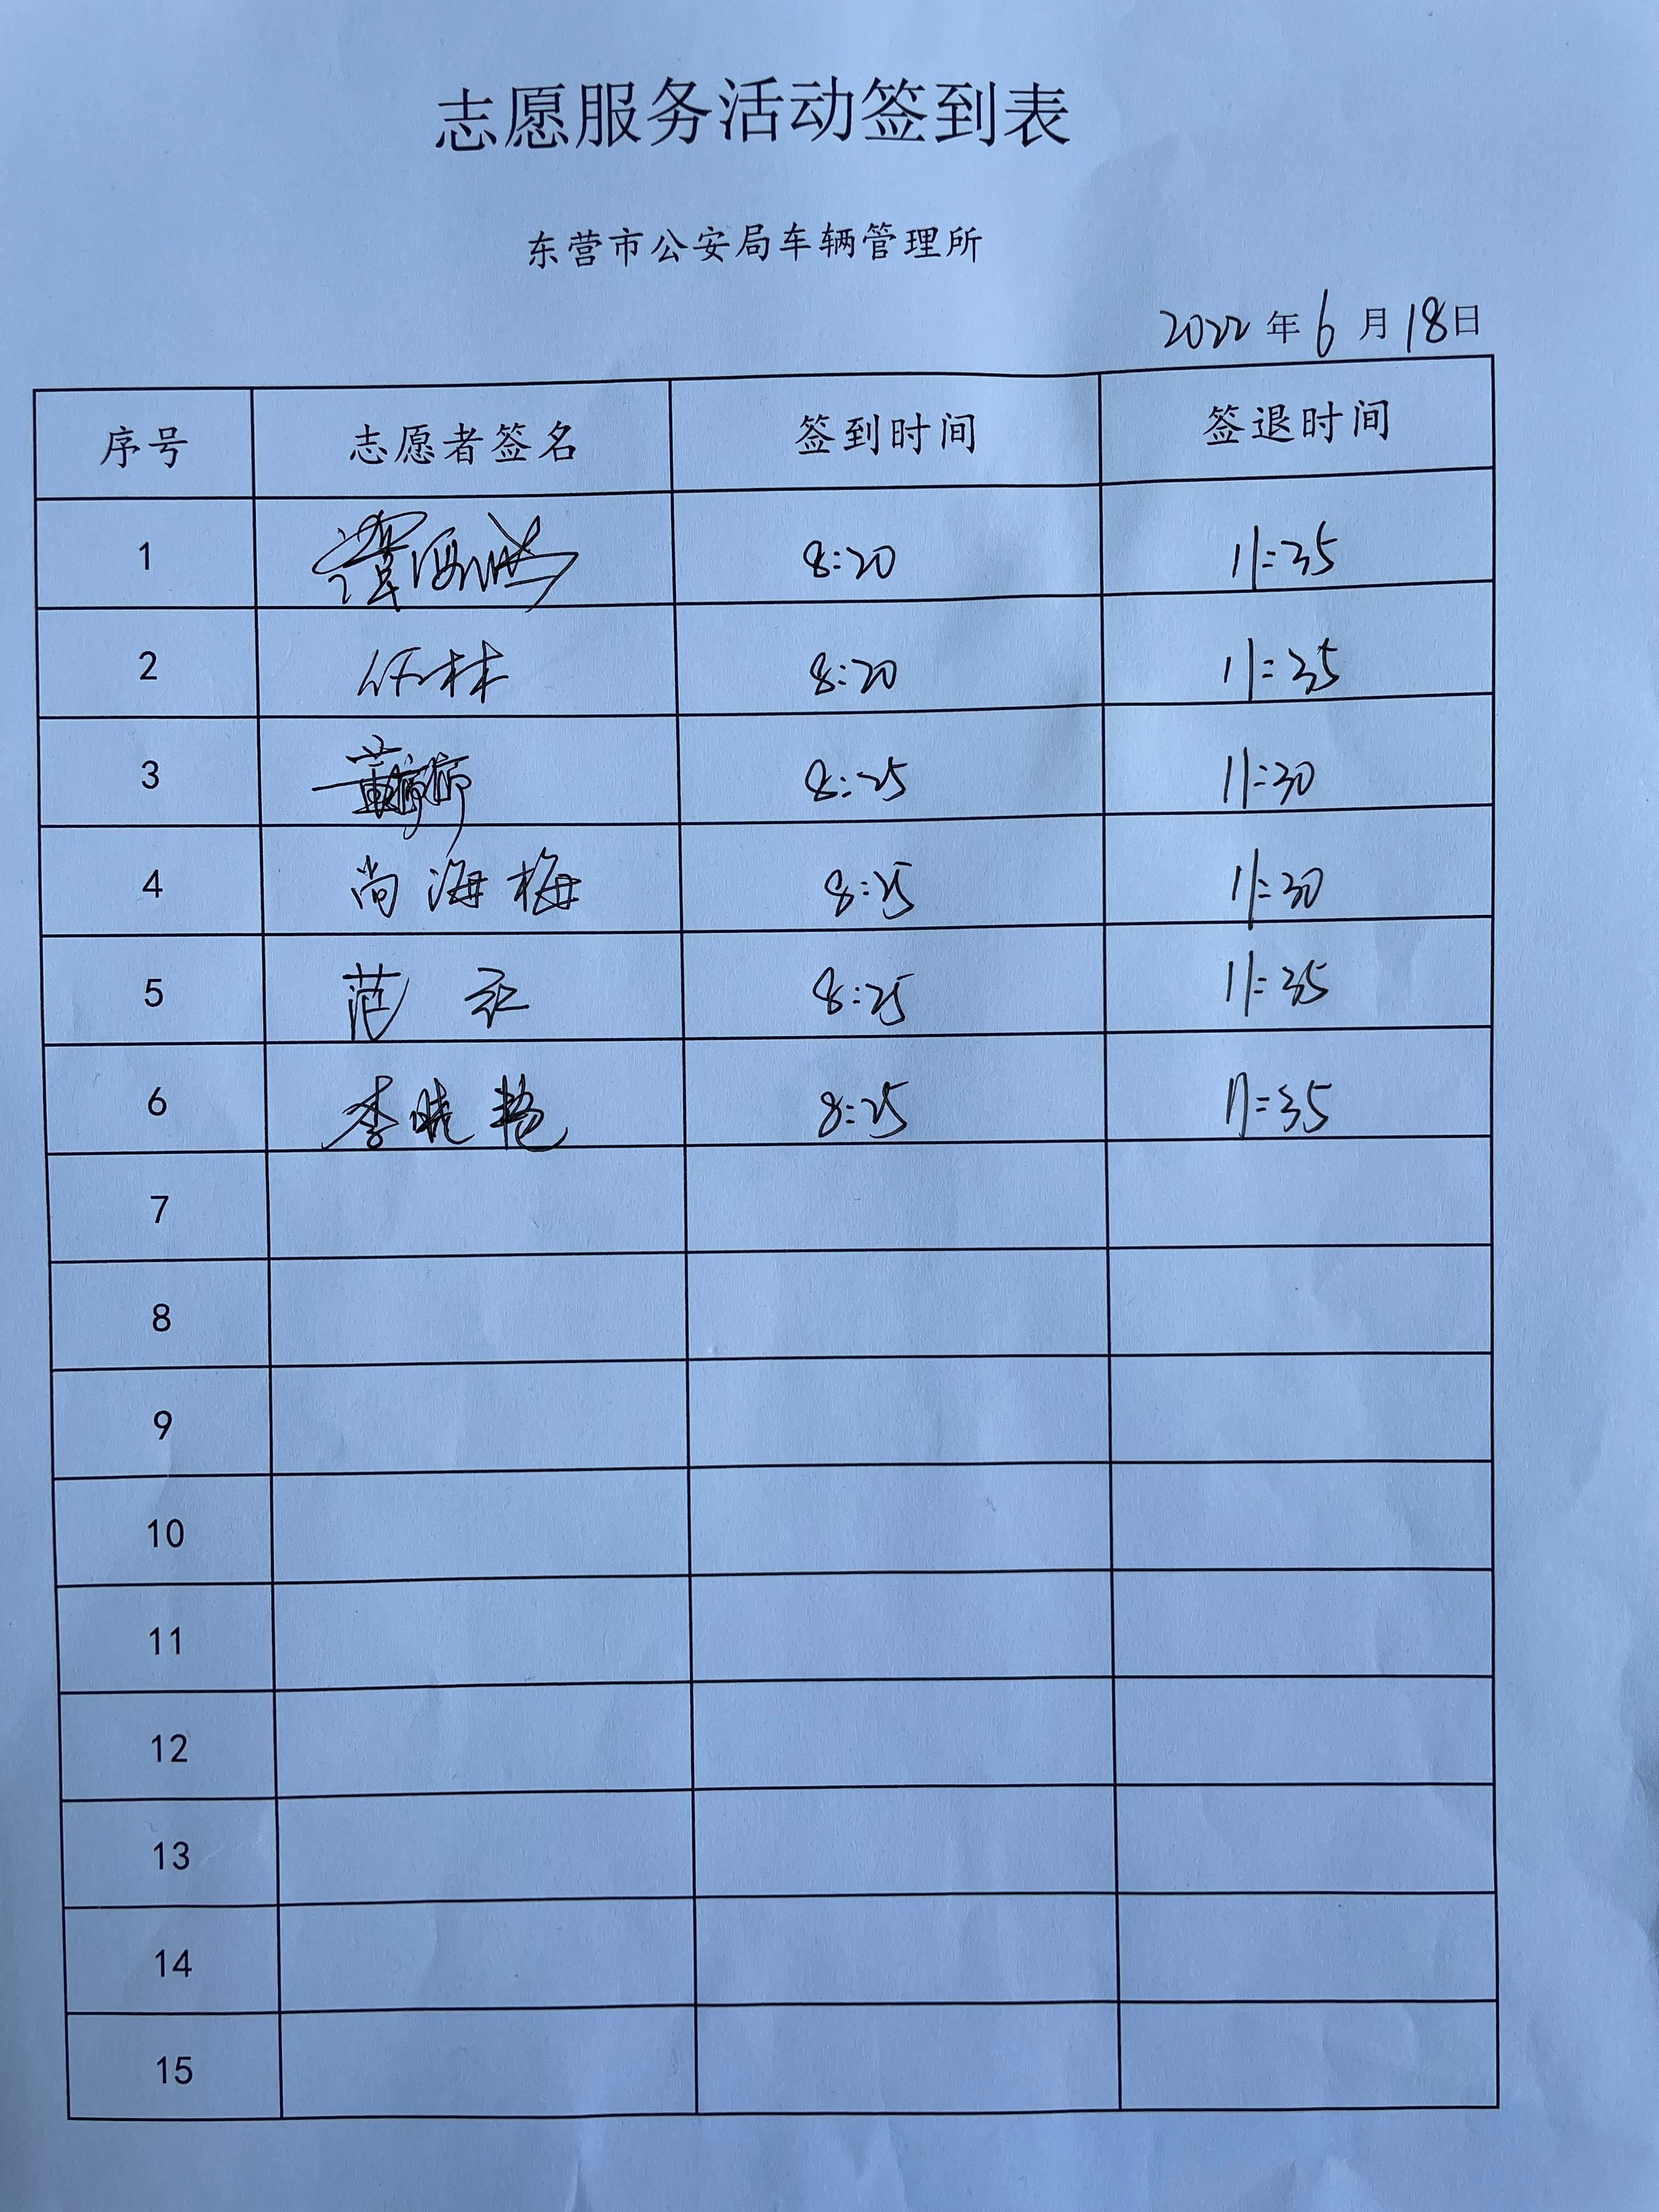 志愿服务活动签到表
东营市公安局车辆管理所
2022年6月18日
序号 志愿者签名 签到时间 签退时间
1 8:20 11:35
2 任林 8:20 11:35
3 8:25 11:30
4 尚海梅 8:25 11:30
5 范红 8:25 11:35
6 李晓艳 8:25 11:35
7
8
9
10
11
12
13
14
15